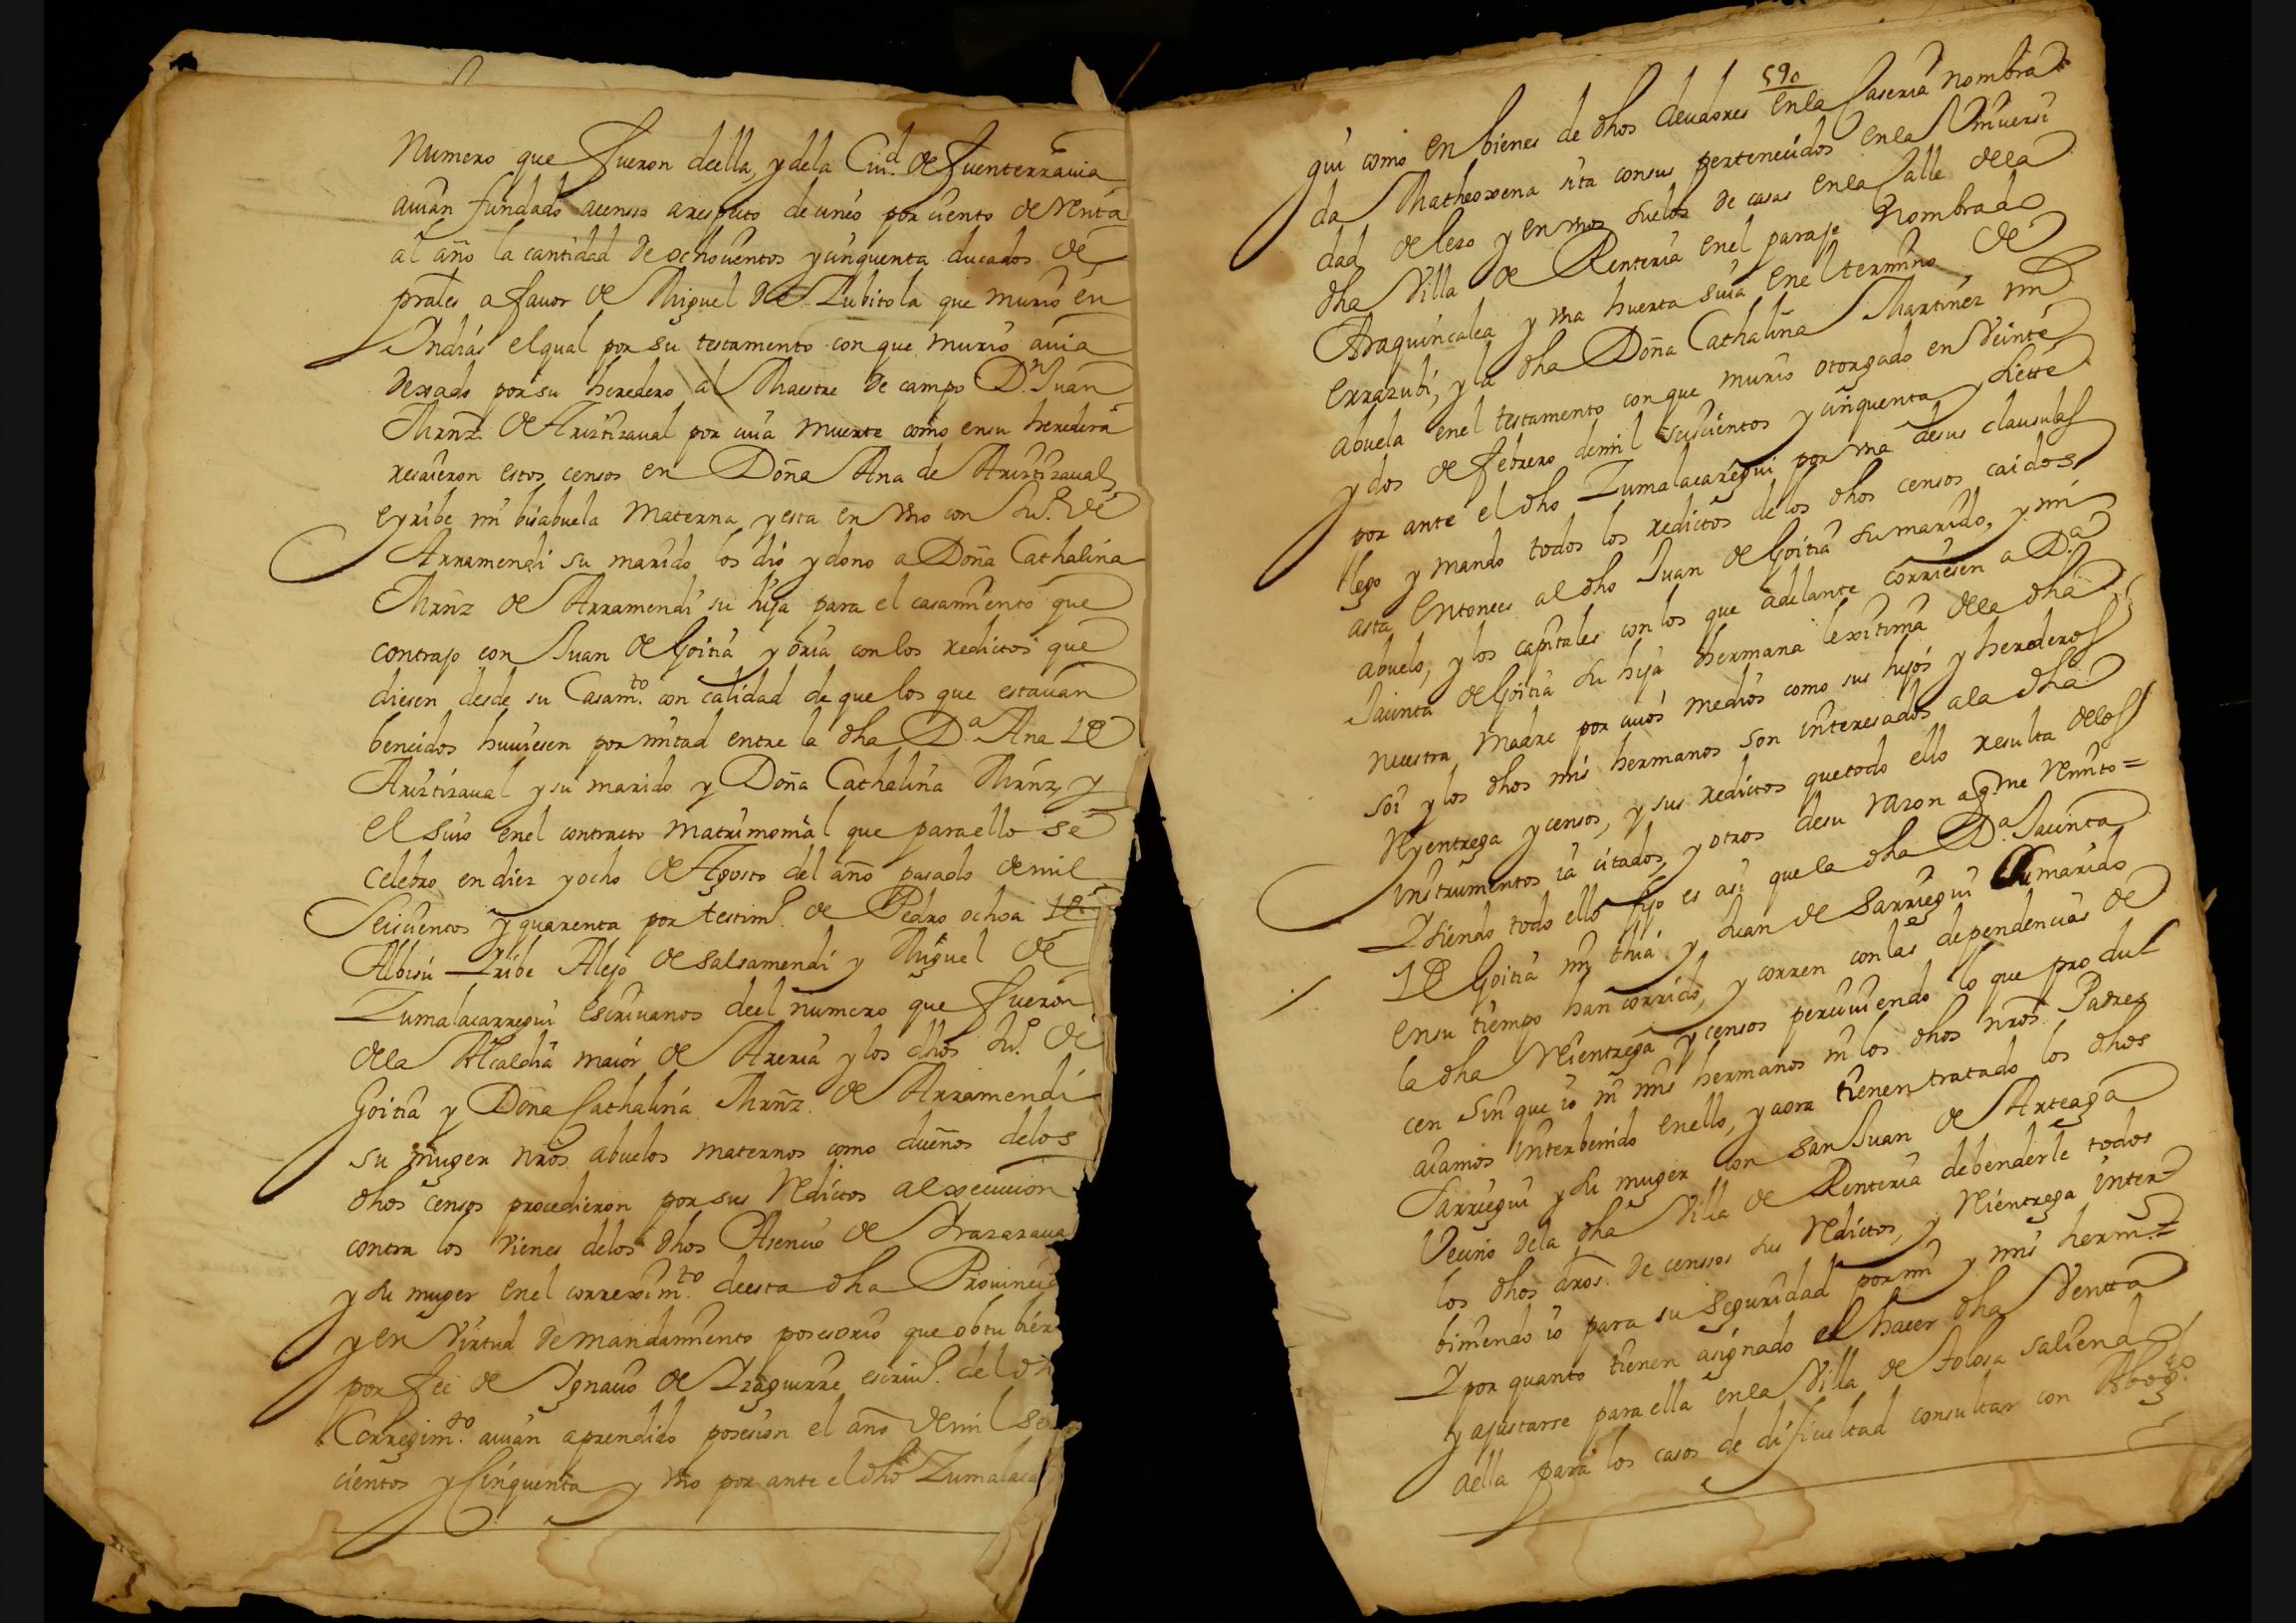 Numero que fueron deella, y dela Ciud. de fuenterrauia
auian fundado acensso arespecto de cinco por ciento de Renta
al año la cantidad de ochocientos y cinquenta ducados de
prales a fauor de Miguel de Zubitola que murio en
Indias el qual por su testamento con que murio auia
dexado por su heredero al Maestre de campo Dn. Juan
Mrnz. de Ariztizaual por cuia muerte como en su heredera
recaieron estos censos en Doña Ana de Ariztizaual
eyribe mi bisabuela Materna y esta en vno con Ju.º de
Arramendi su marido los dio y dono a Doña Cathalina
Mrñz de Arramendi su hija para el casamiento que
contrajo con Juan de Goitia y oria con los redictos que
diesen desde su Casamto. con calidad de que los que estauan
bencidos huuiesen por mitad entre la dha D.ª Ana de
Ariztizaual y su marido y Doña Cathalina Mrnz, y
el suio en el contracto matrimonial que para ello se
celebro en diez y ocho de Agosto del año pasado de mil
seiscientos y quarenta por testim.º de Pedro ochoa de
Albisu Iribe Alejo de salsamendi y Miguel de
Zumalacarregui escriuanos deel numero que fueron
dela Alcaldia maior de Areria y los dhos Ju.º de
Goitia y Doña Cathalina Mrñz. de Arramendi
su muger nros. abuelos maternos como dueños delos
dhos censos procedieron por sus Redictos a execucion
contra los vienes delos dhos Asencio de Irazazaua
y su muger en el correximto. deesta dha Prouincia
y en virtud de mandamiento posesorio que obtubier
por fee de Ygnacio de Yzaguirre escriu.º del dh
Corregimto. auian aprendido posesion el año de mil se
cientos y Cinquenta y vno por ante el dho Zumalaca
590
gui como en bienes de dhos deudores en la Caseria nombra
da Matheoxena sita con sus pertenecidos en la Vniuersi
dad de lezo y en vnos suelos de casas en la Calle dela
dha Villa de Renteria en el paraje Nombrado
Araquincalea y vna huerta suia en el termino de
Errazubi, y la dha Doña Cathalina Martinez mi
abuela en el testamento con que murio otorgado en Veinte
y dos de febrero de mil seiscientos y cinquenta y siette
por ante el dho Zumalacarregui por vna de sus clausulas
lego y mando todos los redictos de los dhos censos caidos
asta entonces al dho Juan de Goitia su marido, y mi
abuelo, y los capitales con los que adelante corriesen a D.ª
Jacinta de Goitia su hija hermana lexitima dela dha
nuestra Madre por cuios medios como sus hijos y herederos
soi y los dhos mis hermanos son interesados ala dha
Rientrega y censos, y sus redictos que todo ello resulta delos
instrumentos ia citados, y otros desu razon a q.e me Remito =
Y siendo todo ello fijo es asi que la dha D.ª Jacinta
de Goitia mi thia y Juan de Sarriegui su marido
en su tiempo han corrido, y corren con las dependencias de
la dha Rientrega y censos perciuiendo lo que produs
cen sin que io ni mis hermanos ni los dhos nros. Padres
aiamos interbenido en ello, y aora tienen tratado los dhos
Sarriegui y su muger con san Juan de Arteaga
Vecino dela dha Villa de Renteria de benderle todos
los dhos dros. de censsos sus Redictos, y Rientrega inter=
biniendo io para su seguridad por mi y mis herm.s =
Y por quanto tienen asignado el hacer dha Ventta
y ajustarse para ella en la Villa de tolosa saliendo
aella para los casos de dificultad consultar con Abog.do